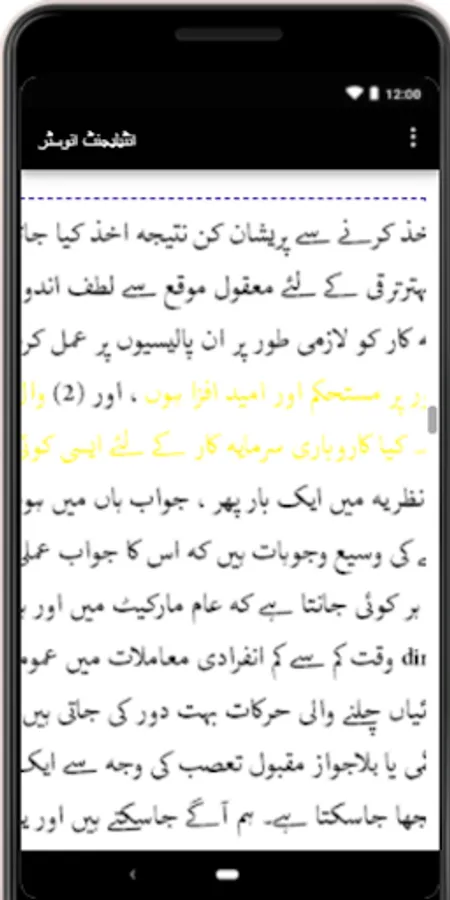 12:00
انٹیلیجنٹ انویسٹر
خذ کرنے سے پریشان کن نتیجہ اخذ کیا جا
بہترترقی کے لئے معقول موقع سے لطف اندو
ہ کار کو لازمی طور پر ان پالیسیوں پر عمل کر
ور پر مستحکم اور امید افزا ہوں ، اور (2) وال
۔ کیا کاروباری سرمایہ کار کے لئے ایسی کوئی
نظریہ میں ایک بار پھر ، جواب ہاں میں ہو
ے کی وسیع وجوہات ہیں کہ اس کا جواب عملی
ہر کوئی جانتا ہے کہ عام مارکیٹ میں اور ب
dir وقت کم سے کم انفرادی معاملات میں عموم
ئیاں چلنے والی حرکات بہت دور کی جاتی ہیں
ئی یا بلاجواز مقبول تعصب کی وجہ سے ایک
جھا جاسکتا ہے۔ ہم آگے جاسکتے ہیں اور ی